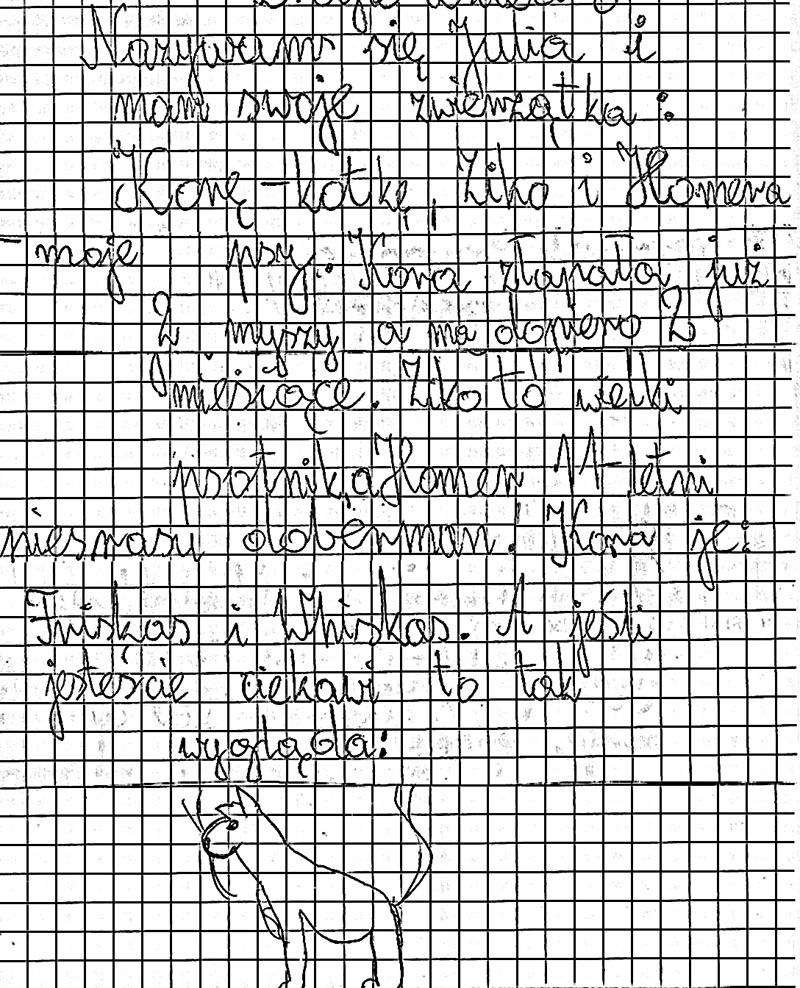 Nazywam się Julia i
mam swoje zwierzątka:
Korę - kotkę, Ziko i Homera
- moje psy. Kora złapała już
2 myszy a ma dopiero 2
miesiące. Ziko to wielki
psotnik, a Homer 11-letni
niesrasu doberman! Kora je:
Friskas i Whiskas. A jeśli
jesteście ciekawi to tak
wygląda: